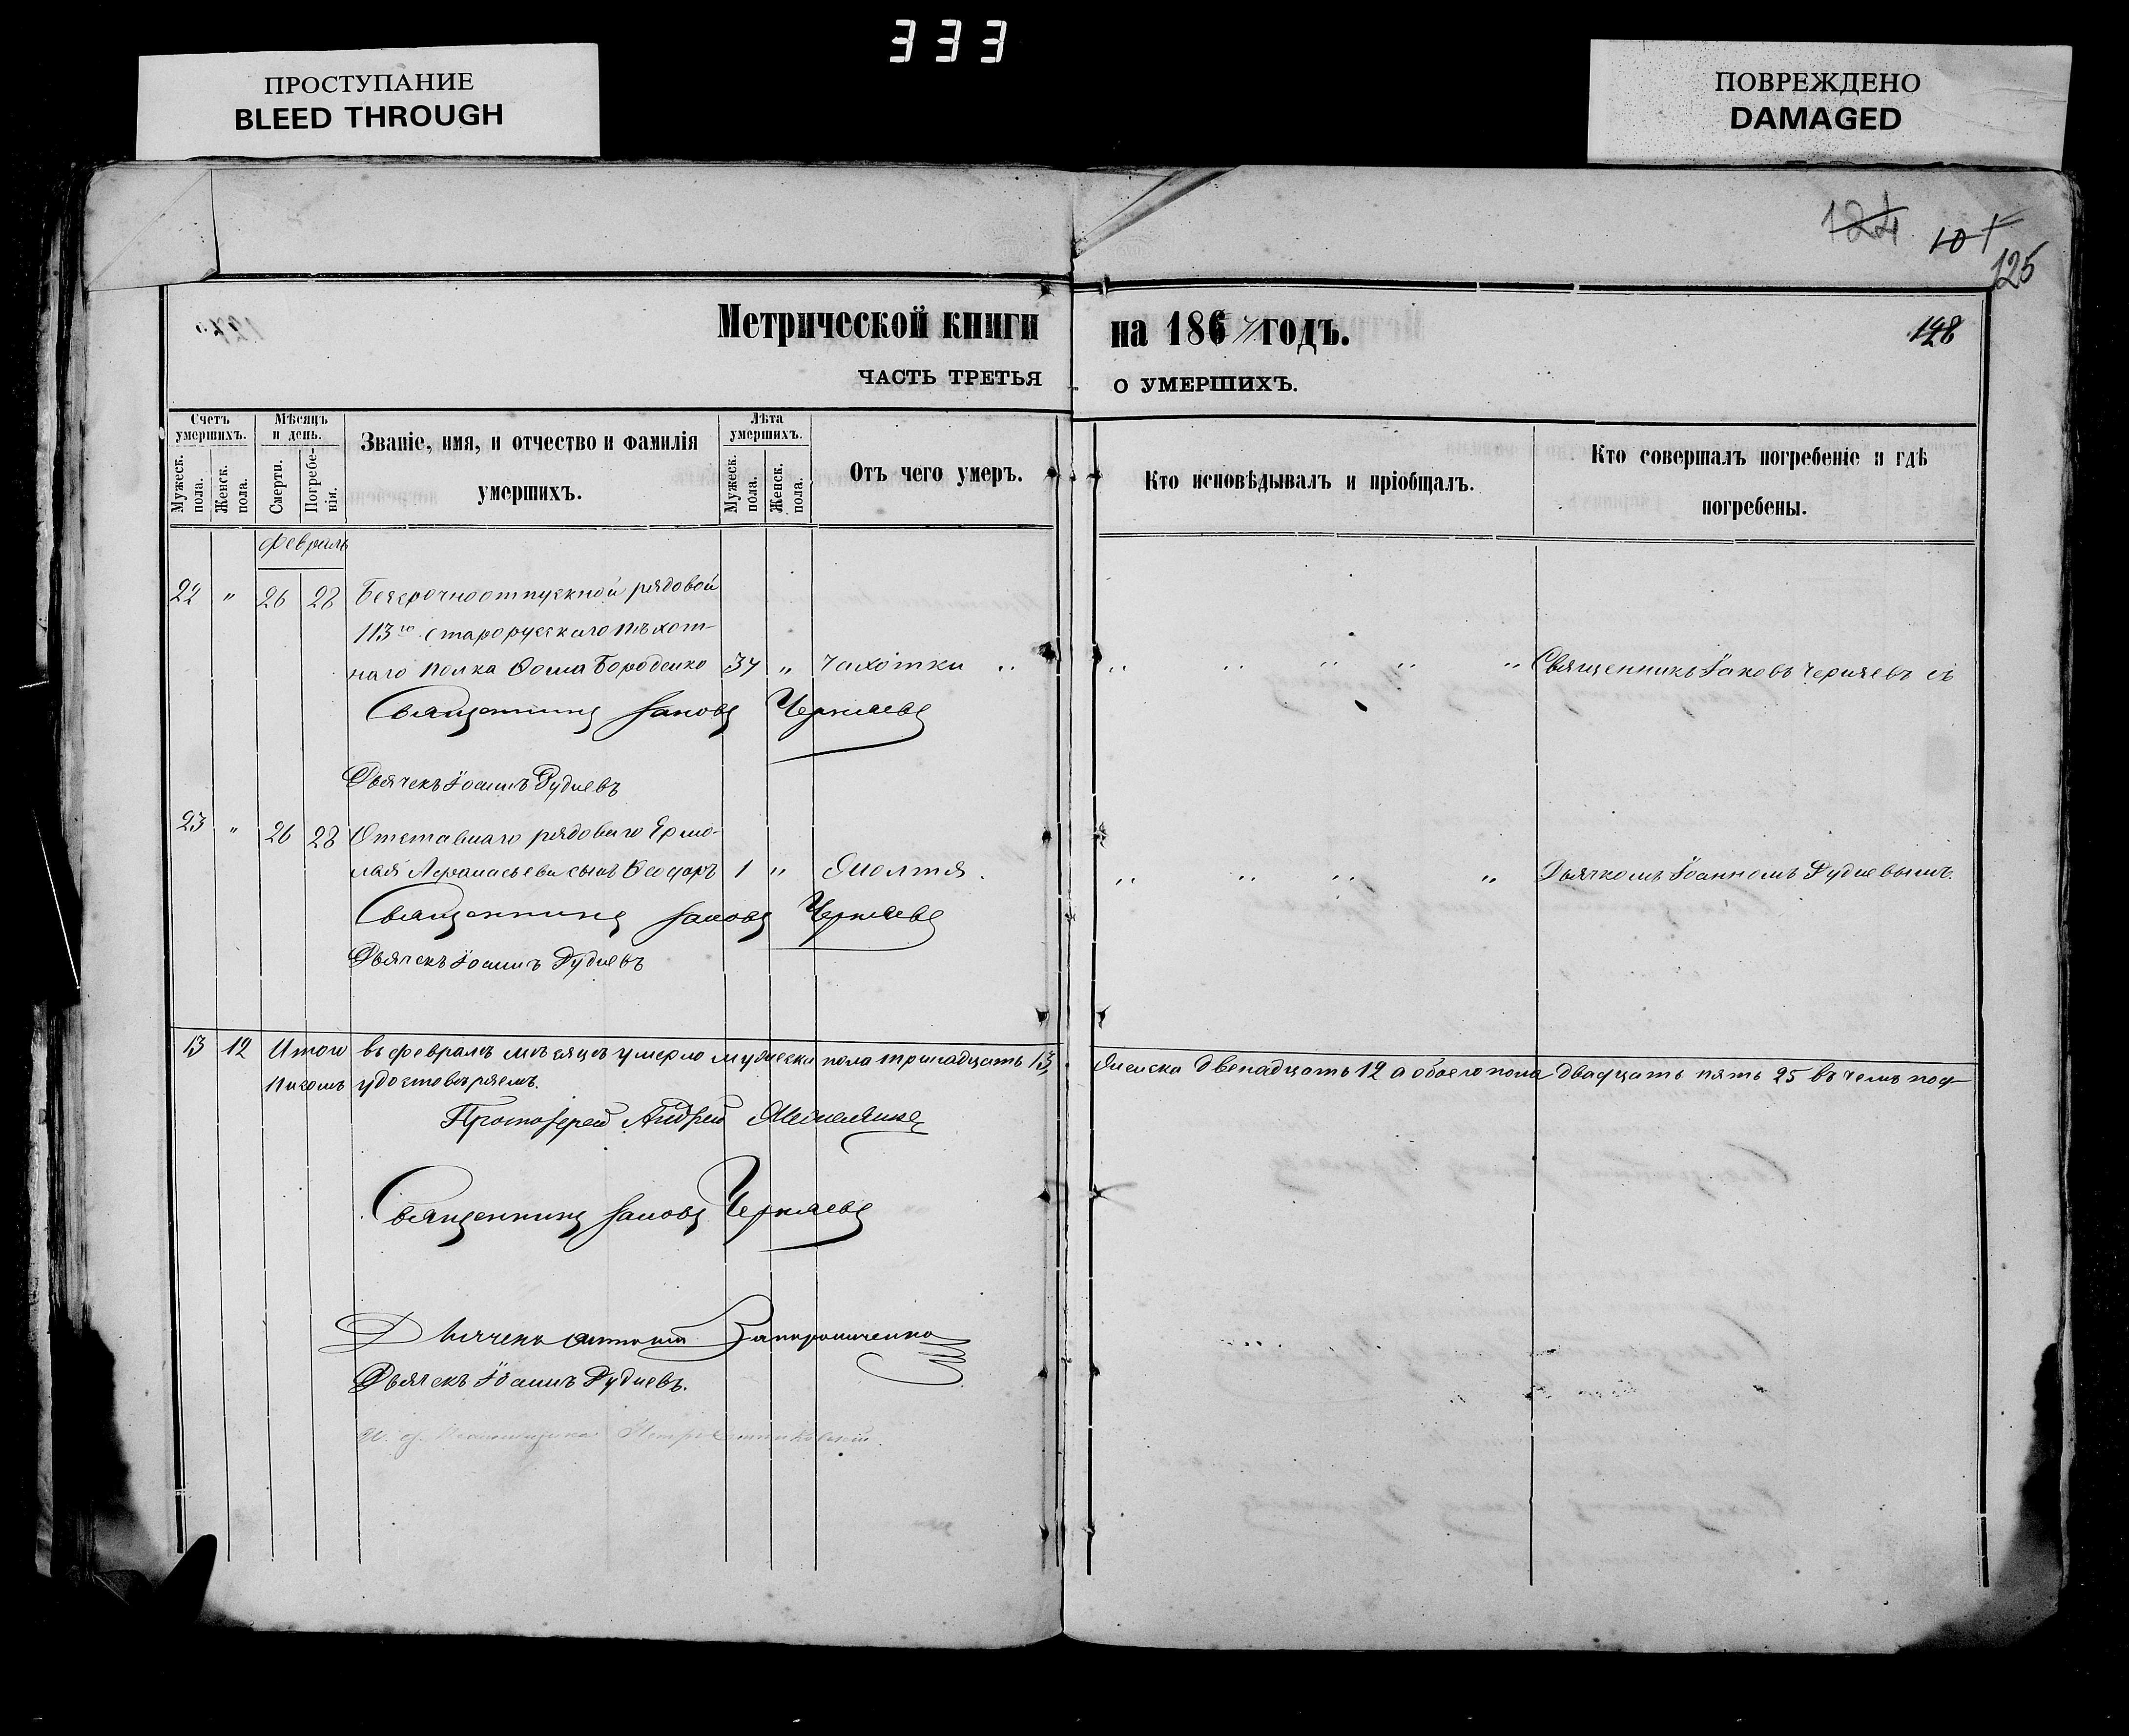 333
ПРОСТУПАНИЕ
BLEED THROUGH
ПОВРЕЖДЕНО
DAMAGED
124 101
125
Метрической книги на 1867 годъ.
128
ЧАСТЬ ТРЕТЬЯ О УМЕРШИХЪ.
Счетъ умершихъ.
Мужеск. пола.
Женск. пола.
Мѣсяцъ и день.
Смерти.
Погребе-нія.
Званіе, имя, и отчество и фамилія умершихъ.
Лѣта умершихъ.
Мужеск. пола.
Женск. пола.
Отъ чего умеръ.
Кто исповѣдывалъ и пріобщалъ.
Кто совершалъ погребеніе и гдѣ погребены.
Февраль
22 " 26 28 Безсрочноотпускной рядовой
113го Старорусскаго пѣхот-
наго полка Ѳома Бороденко 34 " Чахотки " " " " " " Священникъ Іаковъ Черняевъ съ
Священникъ Іаковъ Черняевъ
Дьячекъ Іоаннъ Рудневъ
23 " 26 28 Отставнаго рядоваго Ермо-
лая Афанасьева сынъ Ѳеодоръ 1 " " " " " Дьячкомъ Іоанномъ Рудневымъ.
Священникъ Іаковъ Черняевъ
Дьячекъ Іоаннъ Рудневъ
13 12 Итого въ Февралѣ мѣсяцѣ умерло мужеска пола тринадцать 13, женска двенадцать 12 а обоего пола двадцать пять 25 въ чемъ под-
писомъ удостовѣряемъ.
Протоіерей Андрей
Священникъ Іаковъ Черняевъ
Дьячекъ
Дьячекъ Іоаннъ Рудневъ.